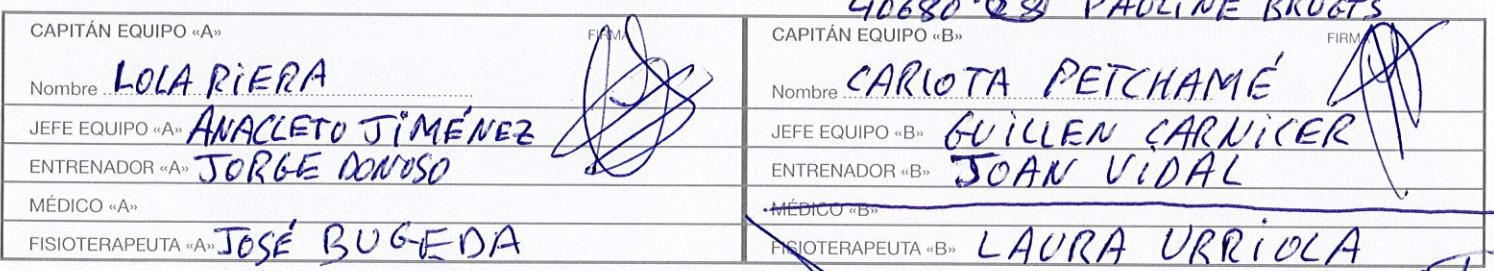 40680 28 PAULINE BRUGTS
CAPITÁN EQUIPO «A» FIRMA
Nombre LOLA RIERA
JEFE EQUIPO «A» ANACLETO JIMÉNEZ
ENTRENADOR «A» JORGE DONOSO
MÉDICO «A»
FISIOTERAPEUTA «A» JOSÉ BUGEDA
CAPITÁN EQUIPO «B» FIRMA
Nombre CARLOTA PETCHAMÉ
JEFE EQUIPO «B» GUILLEN CARNICER
ENTRENADOR «B» JOAN VIDAL
MÉDICO «B»
FISIOTERAPEUTA «B» LAURA URRIOLA